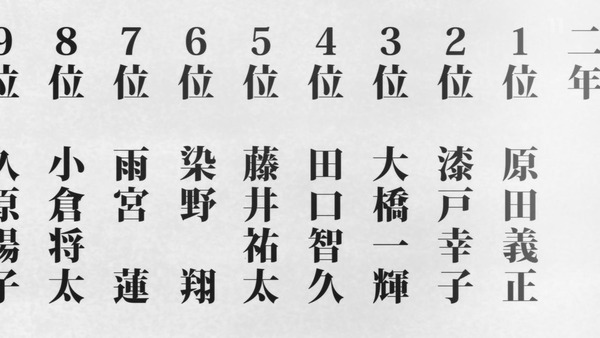 二年
1位 原田義正
2位 漆戸幸子
3位 大橋一輝
4位 田口智久
5位 藤井祐太
6位 染野 翔
7位 雨宮 蓮
8位 小倉将太
9位